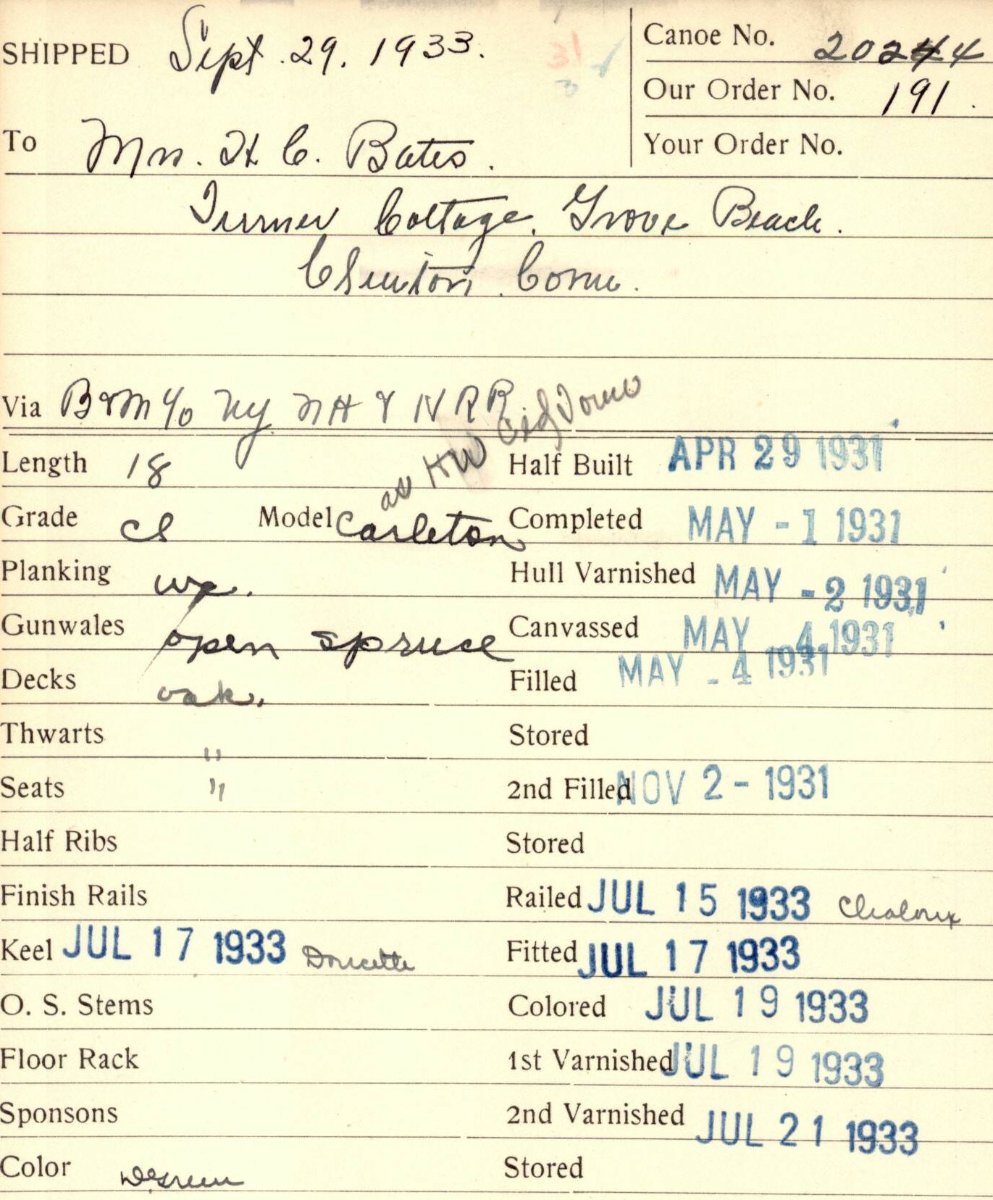 SHIPPED Sept. 29, 1933. 31
3
Canoe No. 20244
Our Order No. 191.
Your Order No.
To Mrs. H C. Bates.
Turner Cottage, Grove Beach.
Clinton, Conn.
Via B & M c/o NY NH & H R R
as HW
Length 18 Half Built APR 29 1931
Grade CS Model Carleton Completed MAY - 1 1931
Planking wc. Hull Varnished MAY - 2 1931
Gunwales open spruce Canvassed MAY 4 1931
Decks oak. Filled MAY - 4 1931
Thwarts " Stored
Seats " 2nd Filled NOV 2 - 1931
Half Ribs Stored
Finish Rails Railed JUL 15 1933
Keel JUL 17 1933 Doucette Fitted JUL 17 1933
O. S. Stems Colored JUL 19 1933
Floor Rack 1st Varnished JUL 19 1933
Sponsons 2nd Varnished JUL 21 1933
Color D Green Stored